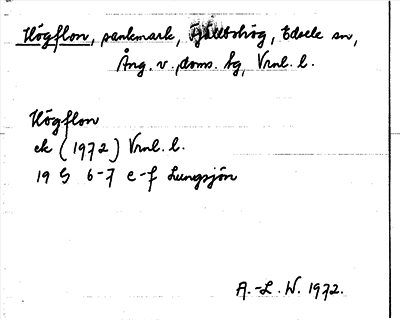 Högflon, sankmark, Fjällbohög, Edsele sn,
Ång. v. doms. hg, Vrnl. l.
Högflon
ek (1972) Vrnl. l.
19 G 6-7 e-f Lungsjön
A.-L. W. 1972.